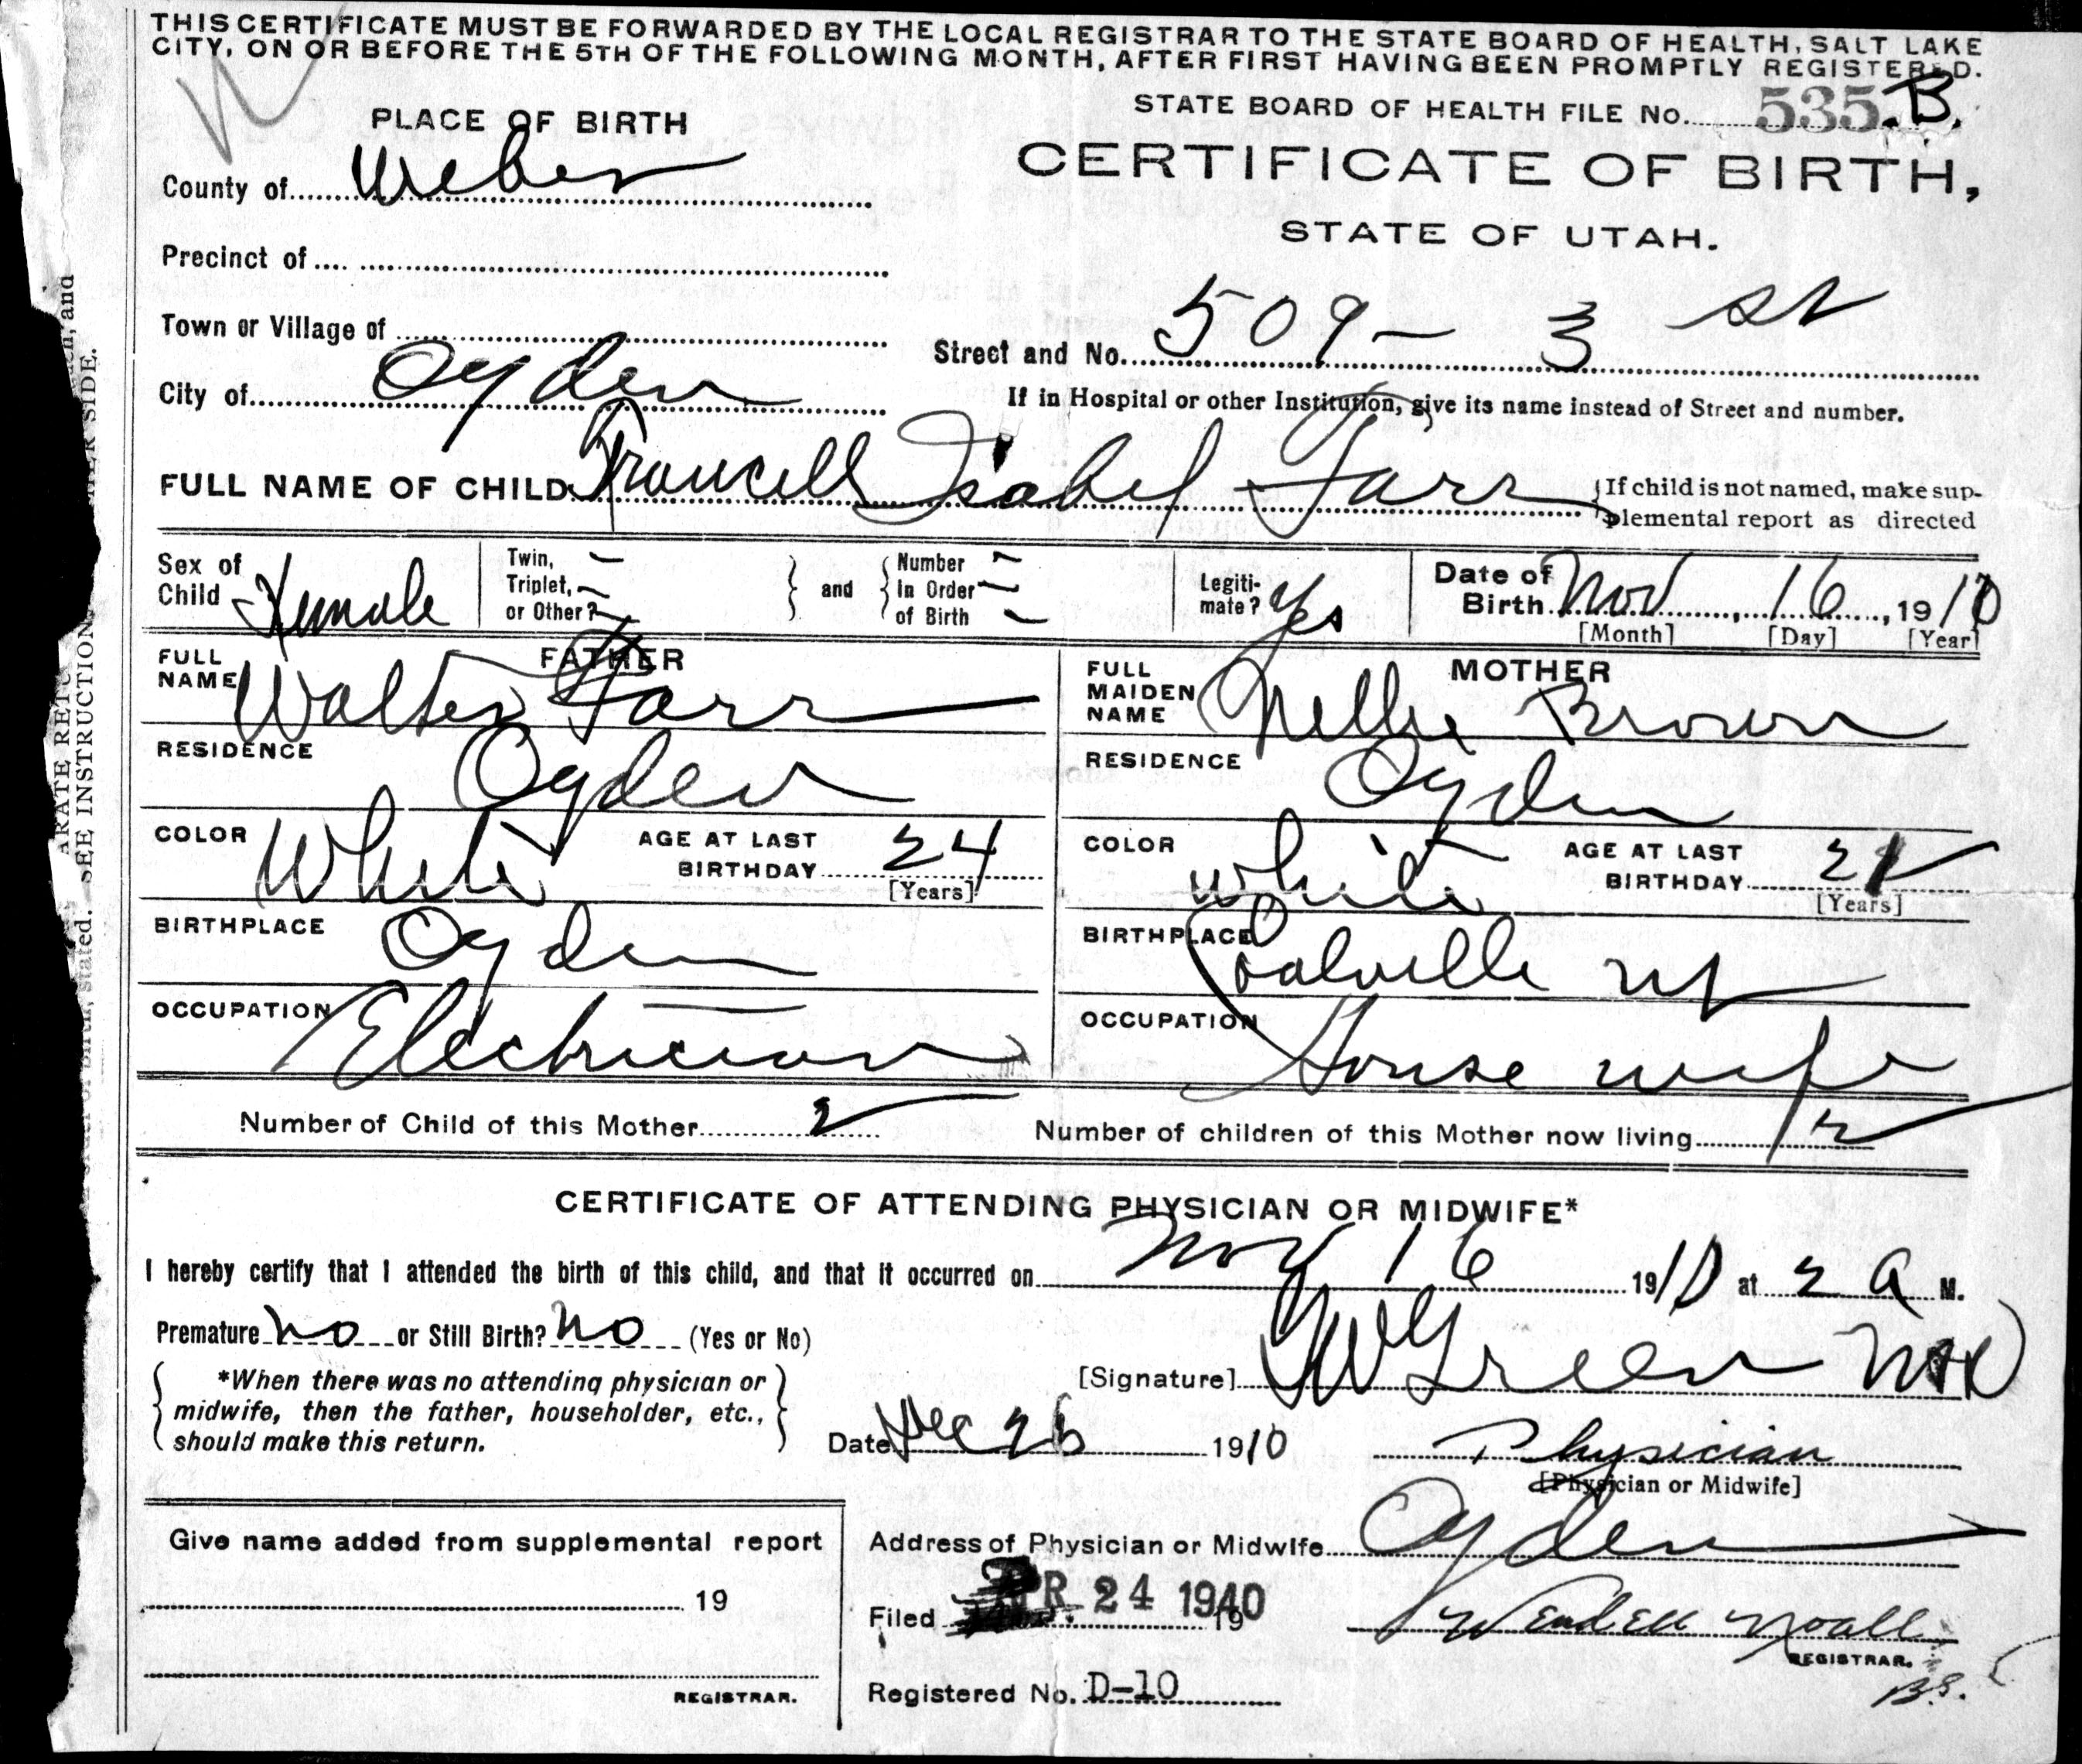 THIS CERTIFICATE MUST BE FORWARDED BY THE LOCAL REGISTRAR TO THE STATE BOARD OF HEALTH, SALT LAKE
CITY, ON OR BEFORE THE 5TH OF THE FOLLOWING MONTH, AFTER FIRST HAVING BEEN PROMPTLY REGISTERED.
STATE BOARD OF HEALTH FILE No. 535.B.
PLACE OF BIRTH
CERTIFICATE OF BIRTH,
County of Weber
STATE OF UTAH.
Precinct of
Town or Village of
Street and No. 509 - 3 st
City of Ogden
If in Hospital or other Institution, give its name instead of Street and number.
FULL NAME OF CHILD Isabel Farr
If child is not named, make sup-
plemental report as directed
Sex of Child Female
Twin, Triplet, or Other? -
and
Number In Order of Birth -
Legiti-mate? Yes
Date of Birth Nov 16, 1910
[Month] [Day] [Year]
FATHER
FULL NAME Walter Farr
RESIDENCE Ogden
COLOR White
AGE AT LAST BIRTHDAY 24
[Years]
BIRTHPLACE Ogden
OCCUPATION Electrician
MOTHER
FULL MAIDEN NAME Nellie Brown
RESIDENCE Ogden
COLOR White
AGE AT LAST BIRTHDAY
[Years]
BIRTHPLACE Coalville
OCCUPATION House wife
Number of Child of this Mother 2
Number of children of this Mother now living 2
CERTIFICATE OF ATTENDING PHYSICIAN OR MIDWIFE*
I hereby certify that I attended the birth of this child, and that it occurred on Nov 16 1910 at 2 A M.
Premature no or Still Birth? no (Yes or No)
*When there was no attending physician or
midwife, then the father, householder, etc.,
should make this return.
[Signature] Green MD
Date Dec 26 1910
Physician
[Physician or Midwife]
Give name added from supplemental report
19
REGISTRAR.
Address of Physician or Midwife Ogden
Filed APR 24 1940 19
Wendell Noall
REGISTRAR.
B.S.
Registered No. D-10
SEE INSTRUCTION
stated.